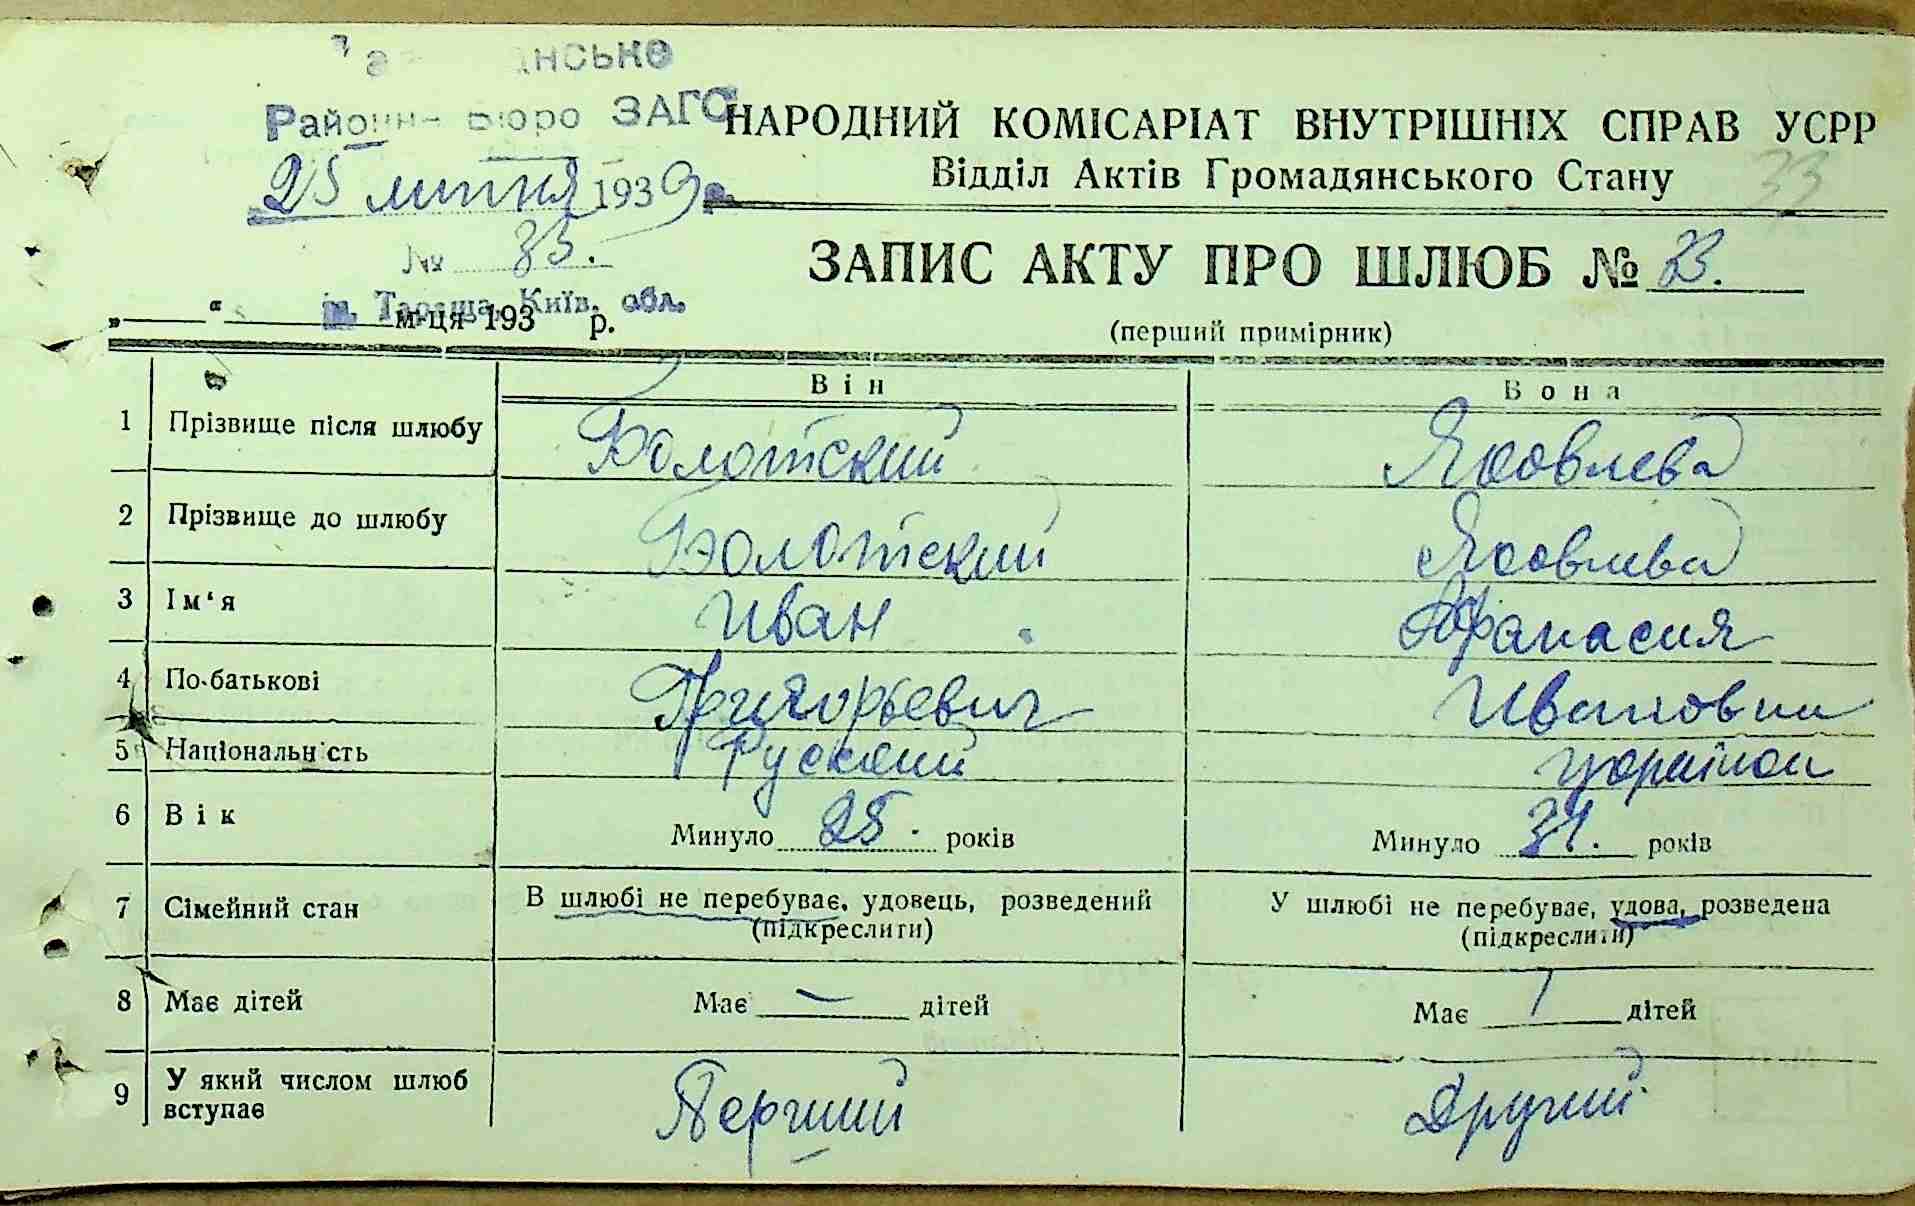 нсько
Районне Бюро ЗАГС
25 липня 1939 р.
№ 33.
м. Тараща, Київ. обл.
„ “ м-ця 193 р.
НАРОДНИЙ КОМІСАРІАТ ВНУТРІШНІХ СПРАВ УСРР
Відділ Актів Громадянського Стану
33
ЗАПИС АКТУ ПРО ШЛЮБ № 33.
(перший примірник)
Він Вона
1 Прізвище після шлюбу Болотский Яковлева
2 Прізвище до шлюбу Болотский Яковлева
3 Ім‘я Иван Афанасия
4 По-батькові Григорьевич Ивановна
5 Національність Руский
6 Вік Минуло 25. років Минуло 34. років
7 Сімейний стан В шлюбі не перебуває, удовець, розведений У шлюбі не перебуває, удова, розведена
(підкреслити) (підкреслити)
8 Має дітей Має — дітей Має 1 дітей
9 У який числом шлюб вступає Перший Другий